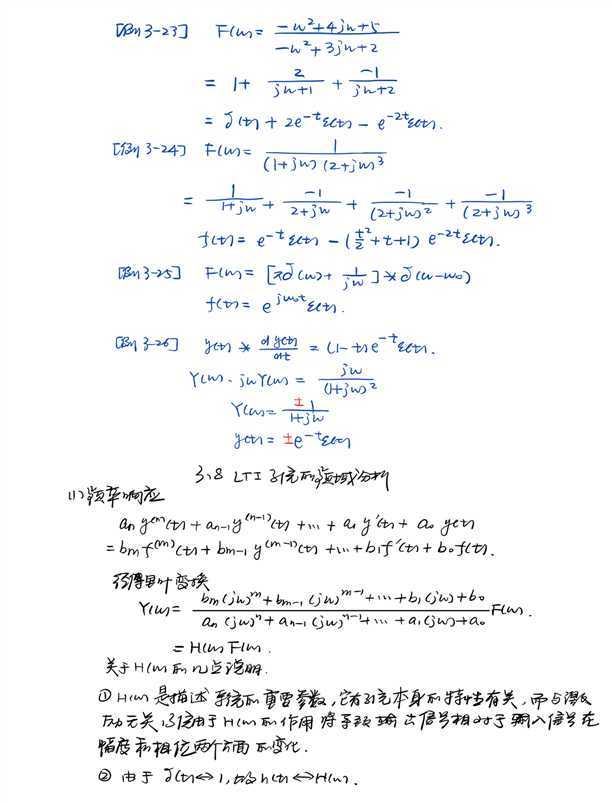 [例3-23] F(ω) = (-ω²+4jω+5)/(-ω²+3jω+2)
= 1 + 2/(jω+1) + -1/(jω+2)
= δ(t) + 2e^{-t}ε(t) - e^{-2t}ε(t).
[例3-24] F(ω) = 1/((1+jω)(2+jω)³)
= 1/(1+jω) + -1/(2+jω) + -1/(2+jω)² + -1/(2+jω)³
f(t) = e^{-t}ε(t) - (t²/2+t+1) e^{-2t}ε(t).
[例3-25] F(ω) = [πδ(ω) + 1/(jω)] * δ(ω-ω₀)
f(t) = e^{jω₀t}ε(t).
[例3-26] y(t) * dy(t)/dt = (1-t)e^{-t}ε(t).
Y(ω)·jωY(ω) = jω/(1+jω)²
Y(ω) = ±1/(1+jω)
y(t) = ±e^{-t}ε(t)
3.8 LTI系统的频域分析
(1) 频率响应
aₙ y^{(n)}(t) + aₙ₋₁ y^{(n-1)}(t) + … + a₁ y'(t) + a₀ y(t)
= bₘ f^{(m)}(t) + bₘ₋₁ y^{(m-1)}(t) + … + b₁ f'(t) + b₀ f(t).
经傅里叶变换
Y(ω) = (bₘ(jω)^m + bₘ₋₁(jω)^{m-1} + … + b₁(jω) + b₀)/(aₙ(jω)^n + aₙ₋₁(jω)^{n-1} + … + a₁(jω) + a₀) F(ω).
= H(ω) F(ω).
关于H(ω)的几点说明.
① H(ω)是描述系统的重要参数, 它与系统本身的特性有关, 而与激
励无关 由于H(ω)的作用 将导致输出信号相对于输入信号在
幅度和相位两个方面的变化.
② 由于 δ(t)↔1, 故h(t)↔H(ω).